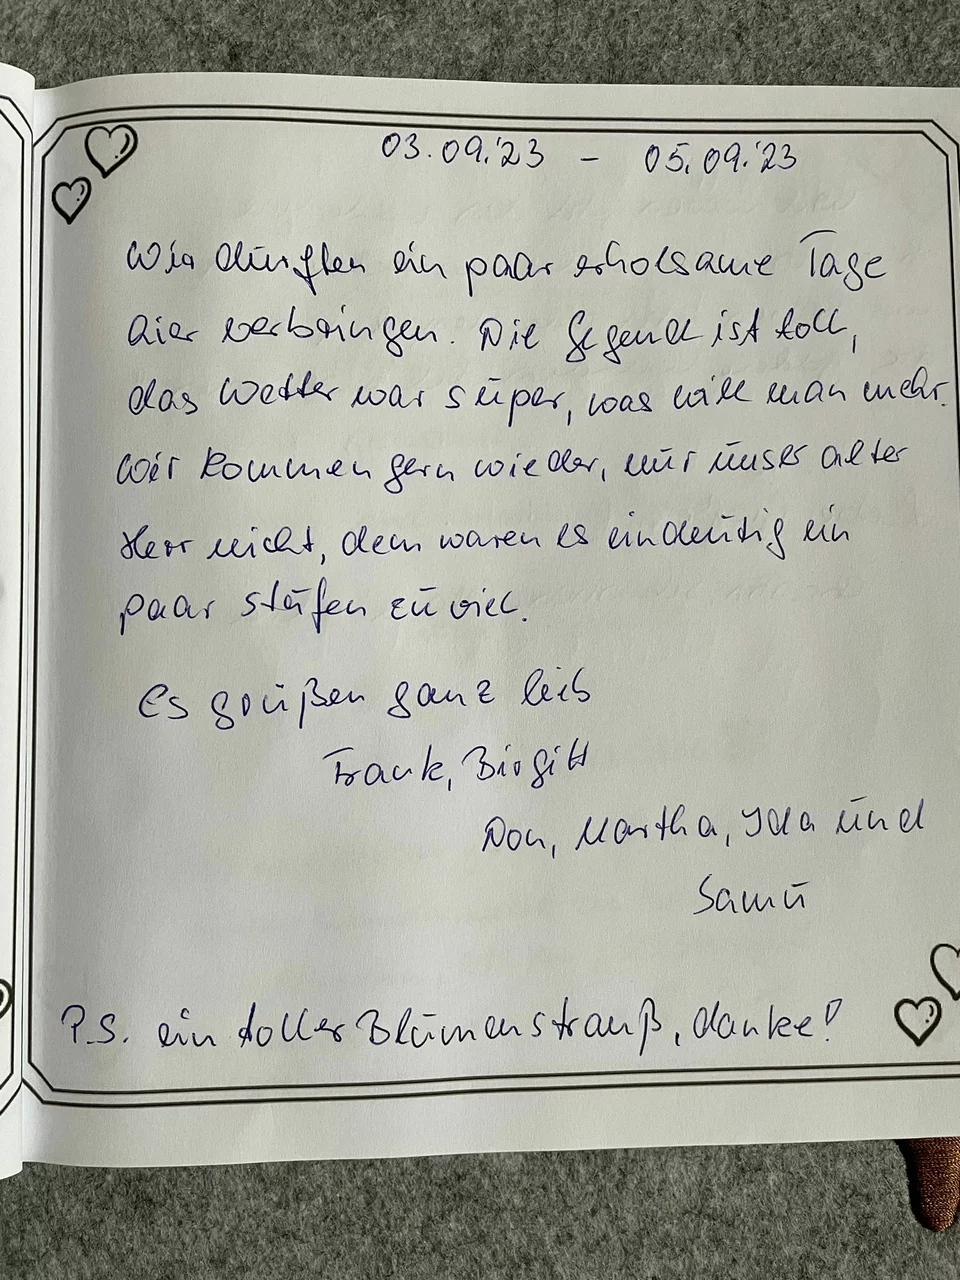 03.09.'23 - 05.09.'23
Wir durften ein paar erholsame Tage
hier verbringen. Die Gegend ist toll,
das Wetter war super, was will man mehr.
Wir kommen gern wieder, nur unser alter
Herr nicht, dem waren es eindeutig ein
paar Stufen zu viel.
Es grüßen ganz lieb
Frank, Birgitt
Don, Martha, Ida und
Samu
P.S. ein toller Blumenstrauß, danke!